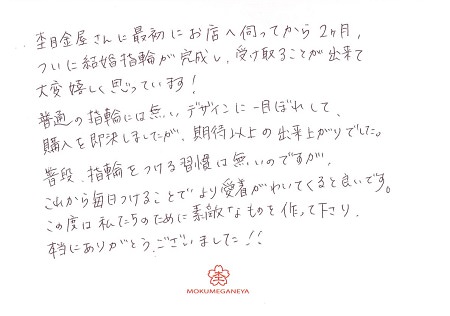 杢目金屋さんに最初にお店へ伺ってから2ヶ月、
ついに結婚指輪が完成し、受け取ることが出来て
大変嬉しく思っています!
普通の指輪には無いデザインに一目ぼれして、
購入を即決しましたが、期待以上の出来上がりでした。
普段、指輪をつける習慣は無いのですが、
これから毎日つけることでより愛着がわいてくると良いです。
この度は私たちのために素敵なものを作って下さり、
本当にありがとうございました!!
MOKUMEGANEYA